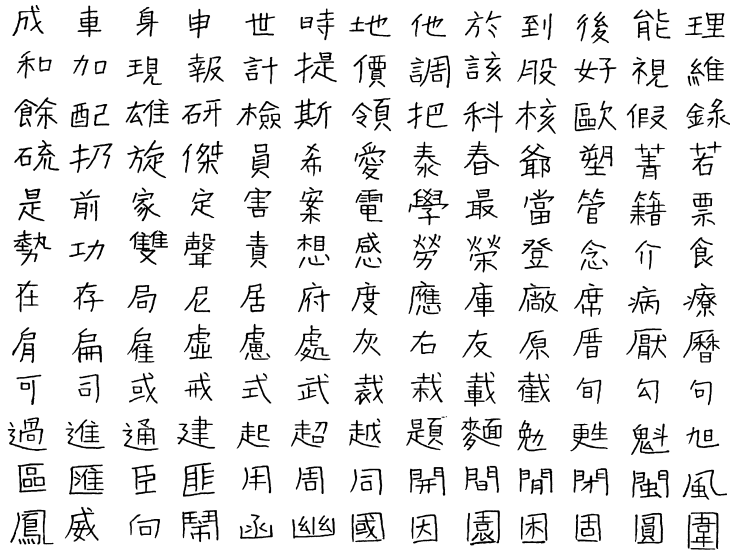 成 車 身 申 世 時 地 他 於 到 後 能 理
和 加 現 報 計 提 價 調 該 股 好 視 維
餘 配 雄 研 檢 斯 領 把 科 核 歐 假 錄
硫 扔 旋 傑 員 希 愛 泰 春 爺 塑 菁 若
是 前 家 定 害 案 電 學 最 當 管 籍 票
勢 功 雙 聲 責 想 感 勞 榮 登 念 介 食
在 存 局 尼 居 府 度 應 庫 廠 席 病 療
肩 扁 雇 虛 慮 處 灰 右 友 原 厝 厭 曆
可 司 或 戒 式 武 裁 栽 載 截 旬 勾 句
過 進 通 建 起 超 越 題 麵 勉 甦 魁 旭
區 匯 臣 匪 用 周 同 開 間 閒 閉 閩 風
鳳 威 向 鬧 函 幽 國 因 園 困 固 圓 圍